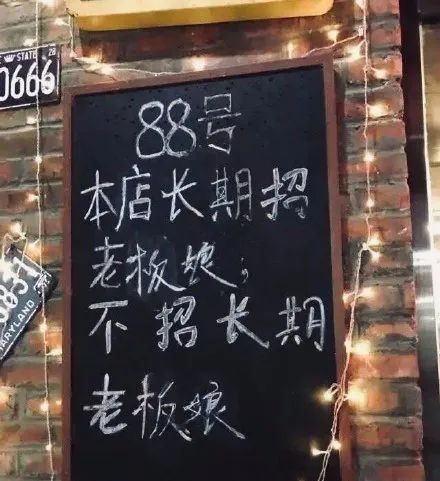 STATE 28
0666
88号
本店长期招
老板娘；
不招长期
老板娘
3857
MARYLAND